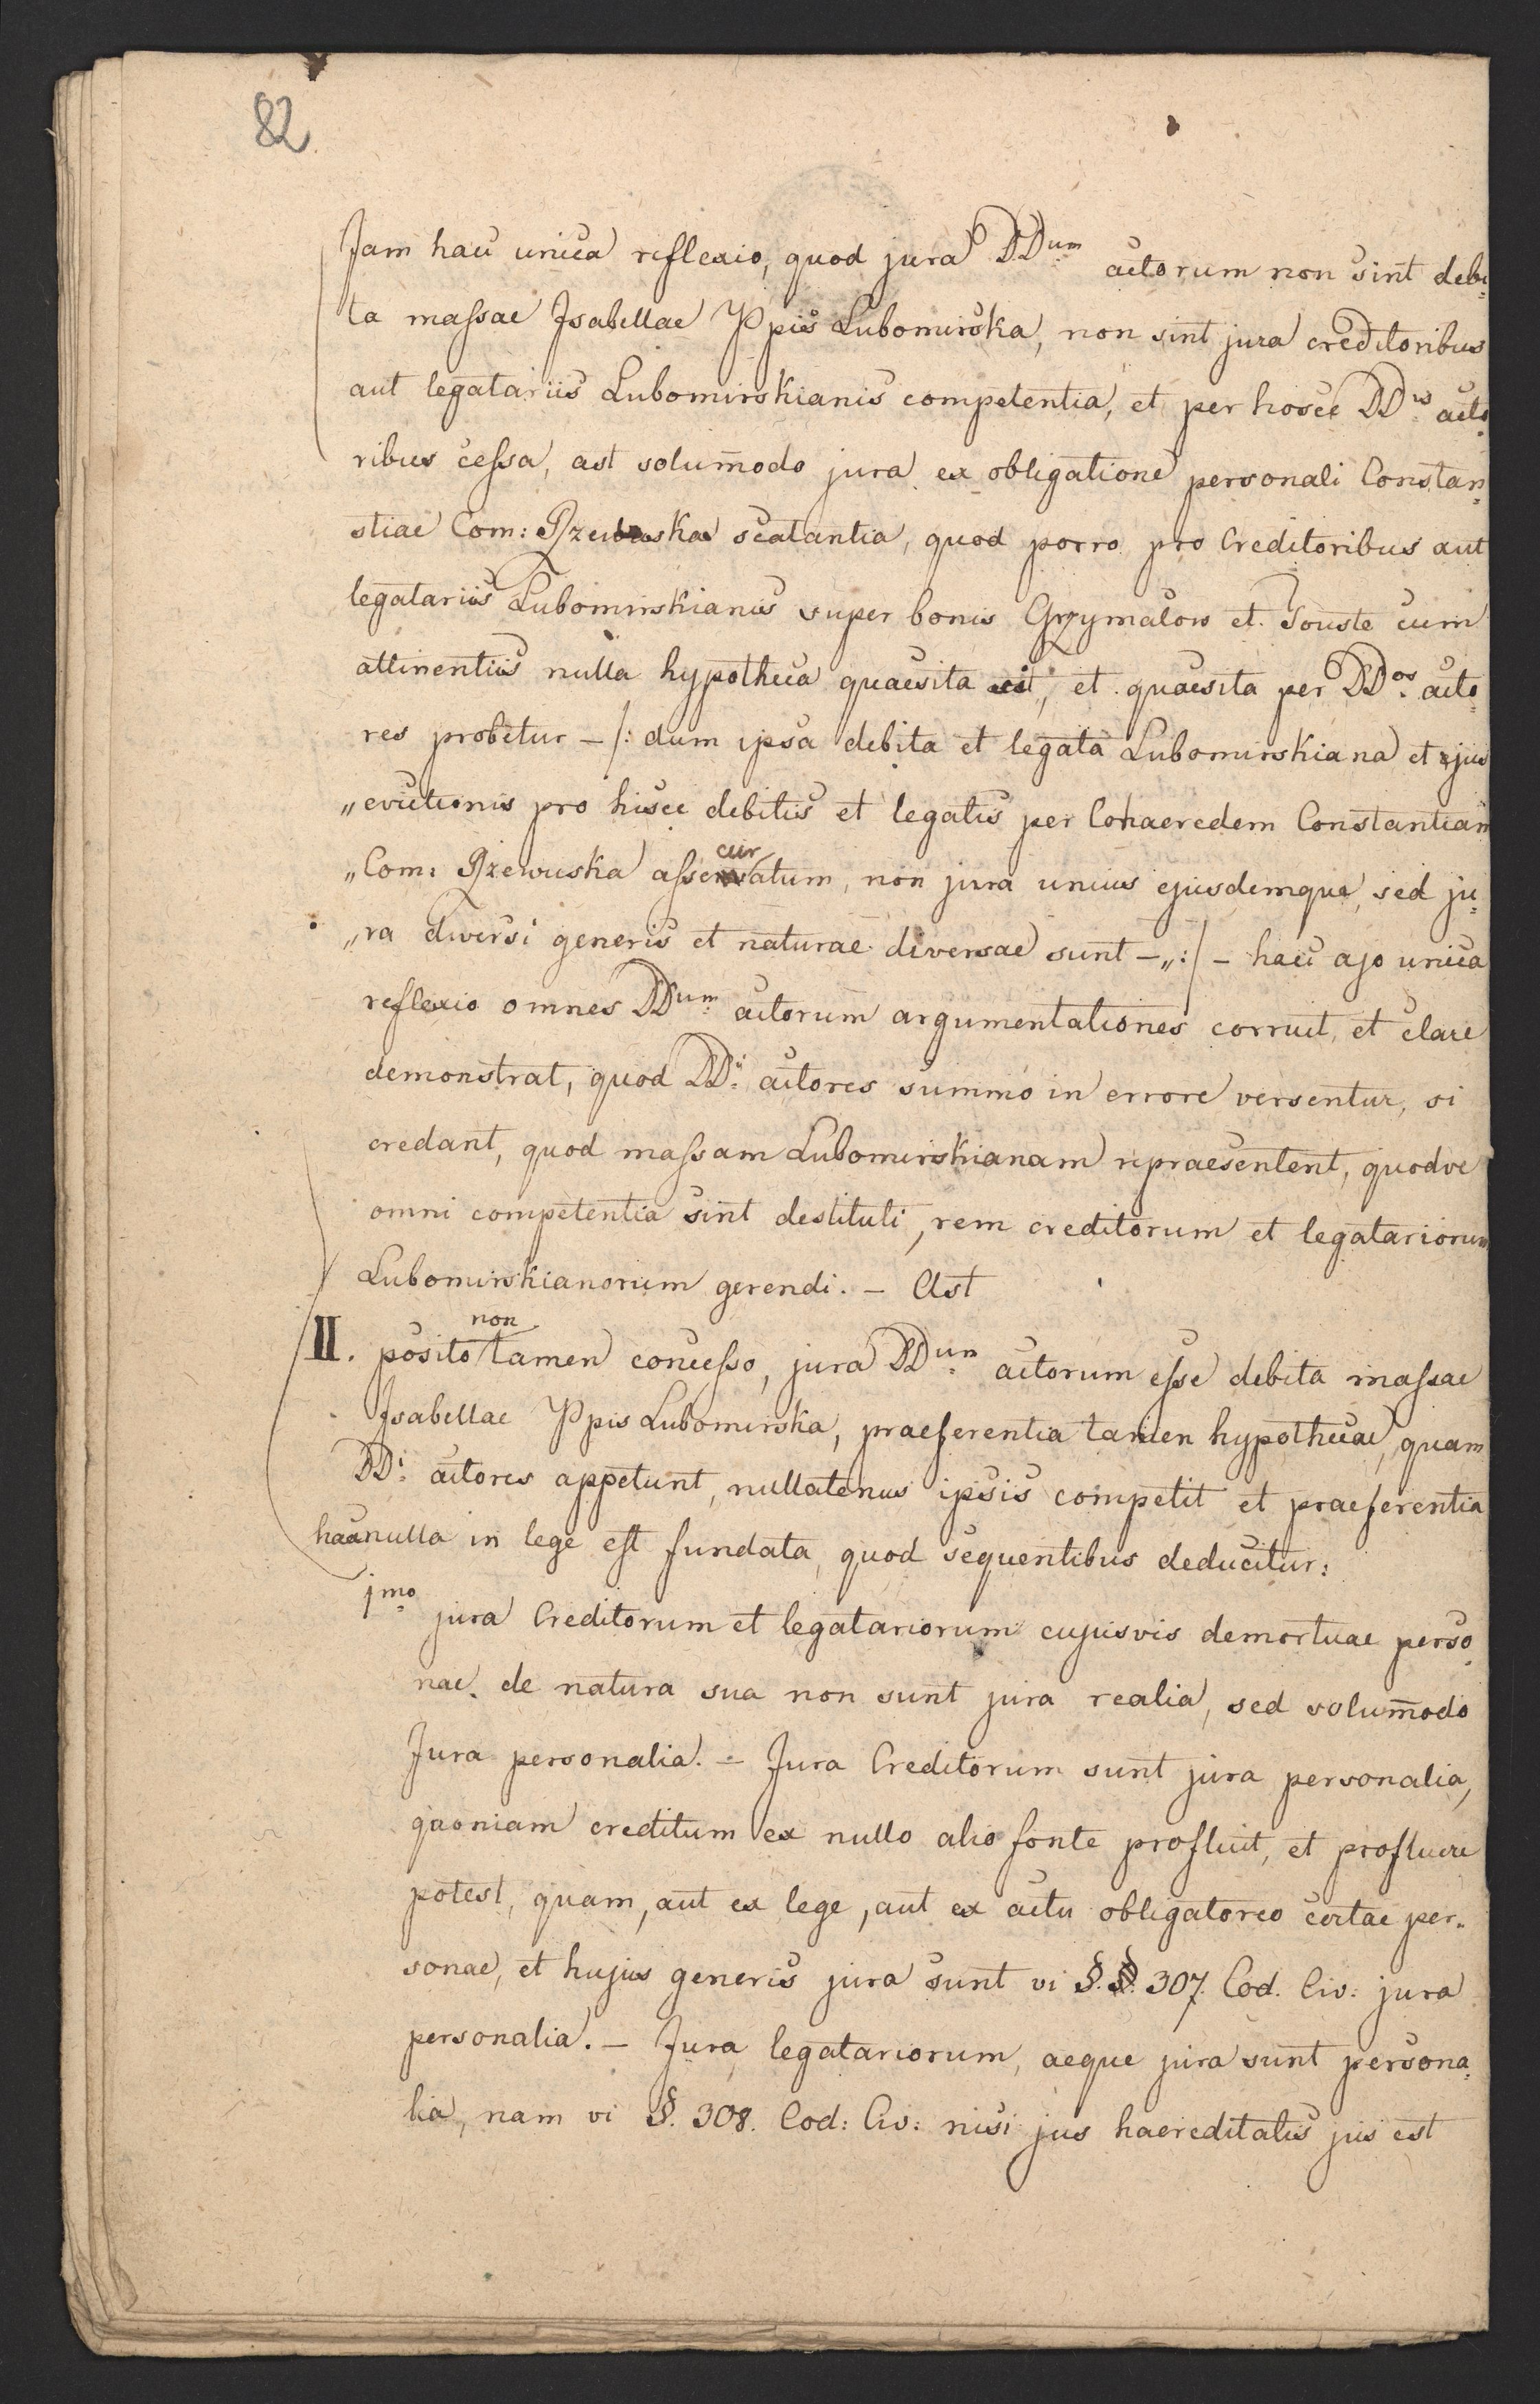 82
Jam haec unica reflexio, quod jura DDum actorum non sint debi=
ta massae Isabellae Ppis Lubomirska, non sint jura creditoribus
aut legatariis Lubomirskianis competentia, et per hosce DDis acto=
ribus cessa, ast solum̄odo jura ex obligatione personali Constan=
stiae Com: Rzewuska scatantia, quod porro pro Creditoribus aut
legatariis Lubomirskianis super bonis Grzymalow et Touste cum
attinentiis nulla hypotheca quaesita sit, et quaesita per DDos acto=
res probetur – /: dum ipsa debita et legata Lubomirskiana et jus
„evictionis pro hisce debitis et legatis per Cohaeredem Constantiam
cur
„Com: Rzewuska assecuratum, non jura unius ejusdemque, sed ju=
„ra diversi generis et naturae diversae sunt –„:/ – haec ajo unica
reflexio omnes DDum actorum argumentationes corruit, et clare
demonstrat, quod DDi actores summo in errore versentur, si
credant, quod massam Lubomirskianam repraesentent, quodve
omni competentia sint destituti, rem creditorum et legatariorum
Lubomirskianorum gerendi. – Ast
non
II. posito tamen concesso, jura DDum actorum esse debita massae
Isabellae Ppis Lubomirska, praeferentia tamen hypothecae, quam
DDi actores appetunt, nullatenus ipsis competit et praeferentia
haec nulla in lege est fundata, quod sequentibus deducitur:
1mo jura Creditorum et legatariorum cujusvis demortuae perso=
nae, de natura sua non sunt jura realia, sed solum̄odo
Jura personalia. – Jura Creditorum sunt jura personalia,
quoniam creditum ex nullo alio fonte profluit, et profluere
potest, quam, aut ex lege, aut ex actu obligatoreo certae per=
sonae, et hujus generis jura sunt vi §. 307. Cod. Civ: jura
personalia. – Jura legatariorum, aeque jura sunt persona=
lia, nam vi §. 308. Cod: Civ: nisi jus haereditatis jus est